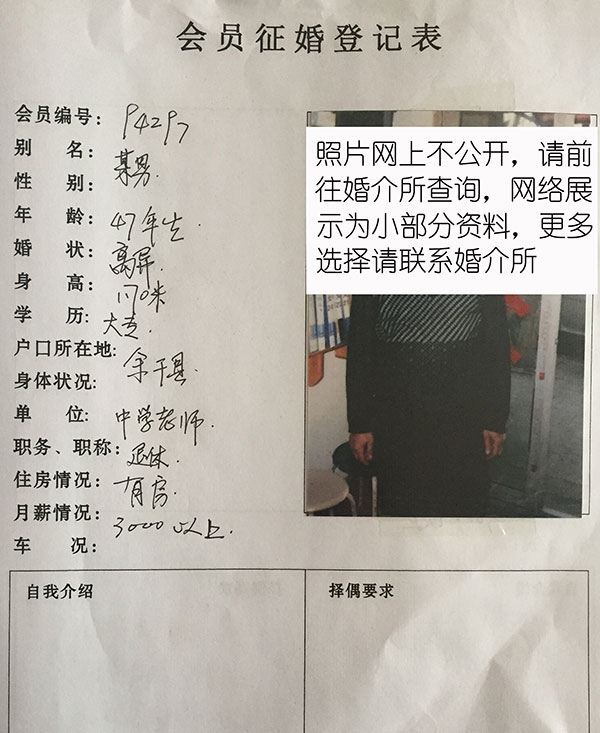 会员征婚登记表
会员编号：P4297
别 名：某男.
性 别：
年 龄：47年生.
婚 状：离异.
身 高：1.70米
学 历：大专.
户口所在地：余干县.
身体状况：
单 位：中学老师.
职务、职称：退休.
住房情况：有房.
月薪情况：3000以上.
车 况：
照片网上不公开，请前
往婚介所查询，网络展
示为小部分资料，更多
选择请联系婚介所
自我介绍
择偶要求